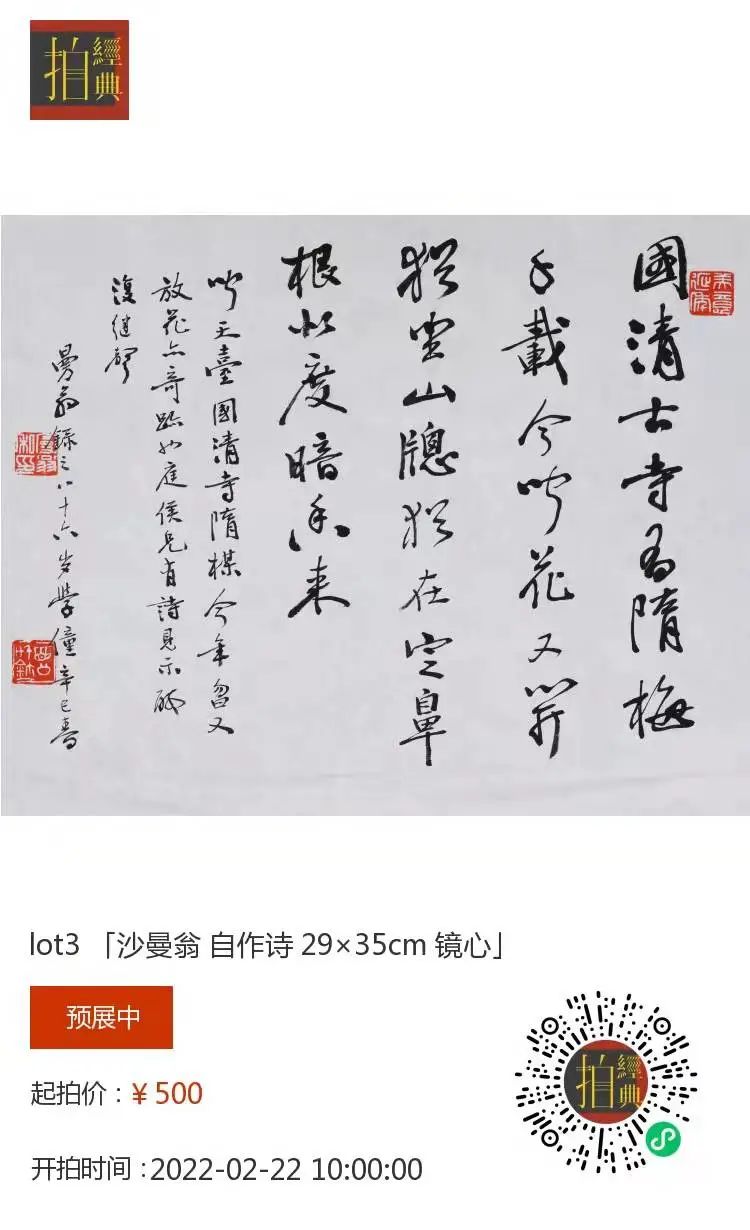 拍
經典
國清古寺有隋梅
千載今聞花又開
猶坐山牕猶在定鼻
根幾度暗香來
聞天臺國清寺隋楳今年忽又
放花亦奇跡也庭侯兄有詩見示
復繼聲
曼翁錄之八十六岁學僮辛巳春
lot3 「沙曼翁 自作诗 29×35cm 镜心」
预展中
起拍价：¥ 500
开拍时间 :2022-02-22 10:00:00
拍
經典